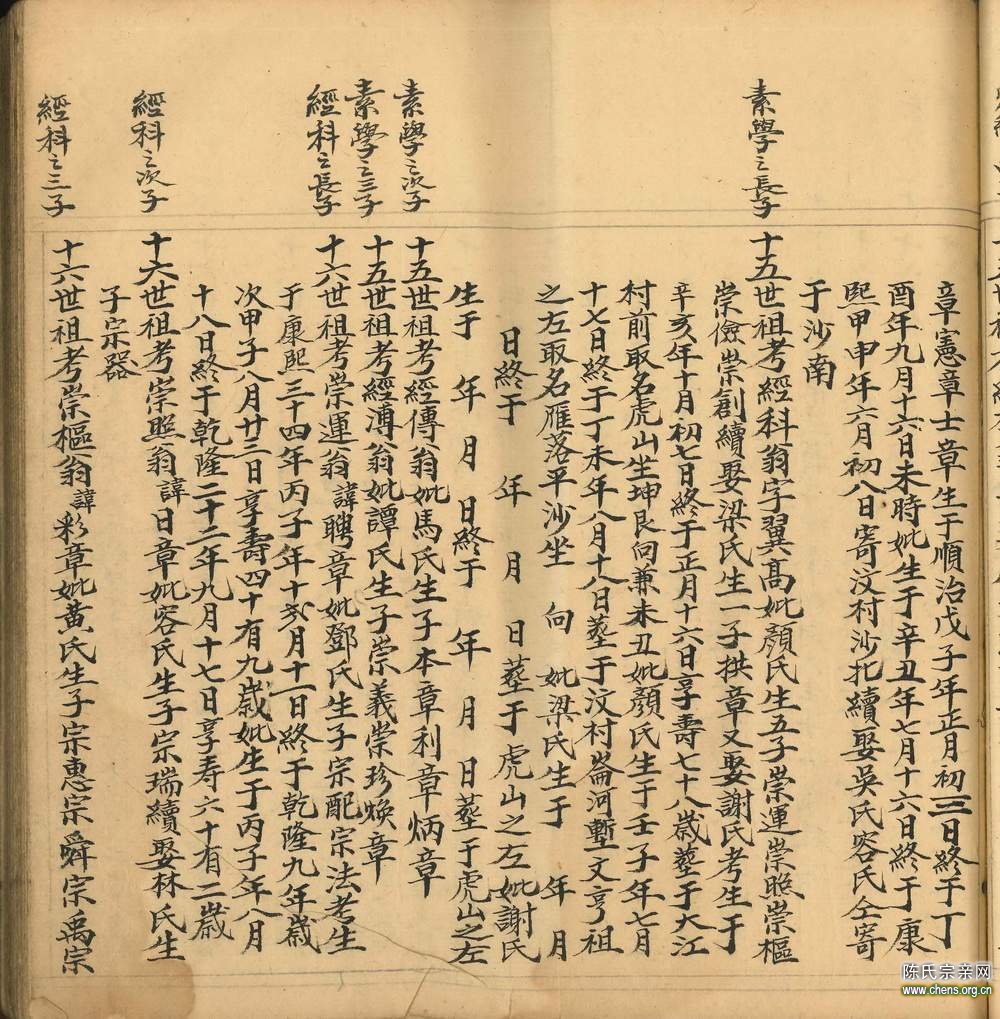 章憲章士章生于順治戊子年正月初三日終于丁
酉年九月十六日未時妣生于辛丑年七月十六日終于康
熙甲申年六月初八日寄汶村沙圠續娶吳氏容氏仝寄
于沙南
素學之長子
十五世祖考經科翁字翼髙妣顏氏生五子崇運崇照崇樞
崇儉崇創續娶梁氏生一子拱章又娶謝氏考生于
辛亥年十月初七日終于正月十六日享壽七十八歲塟于大江
村前取名虎山坐坤艮向兼未丑妣顏氏生于壬子年七月
十七日終于丁未年八月十八日塟于汶村崙河塹文亨祖
之左取名雁落平沙坐 向 妣梁氏生于 年 月
日終于 年 月 日塟于虎山之左妣謝氏
生于 年 月 日終于 年 月 日塟于虎山之左
素學之次子
十五世祖考經傳翁妣馬氏生子本章利章炳章
素學之三子
十五世祖考經溥翁妣譚氏生子崇義崇珍煥章
經科之長子
十六世祖考崇運翁諱聘章妣鄧氏生子宗配宗法考生
于康熙三十四年丙子年十弍月十一日終于乾隆九年歲
次甲子八月廿三日享壽四十有九歲妣生于丙子年八月
十八日終于乾隆二十二年九月十七日享寿六十有二歲
經科之次子
十六世祖考崇照翁諱日章妣容氏生子宗瑞續娶林氏生
子宗器
經科之三子
十六世祖考崇樞翁諱彩章妣黃氏生子宗惠宗舜宗禹宗
陈氏宗亲网
www.chens.org.cn